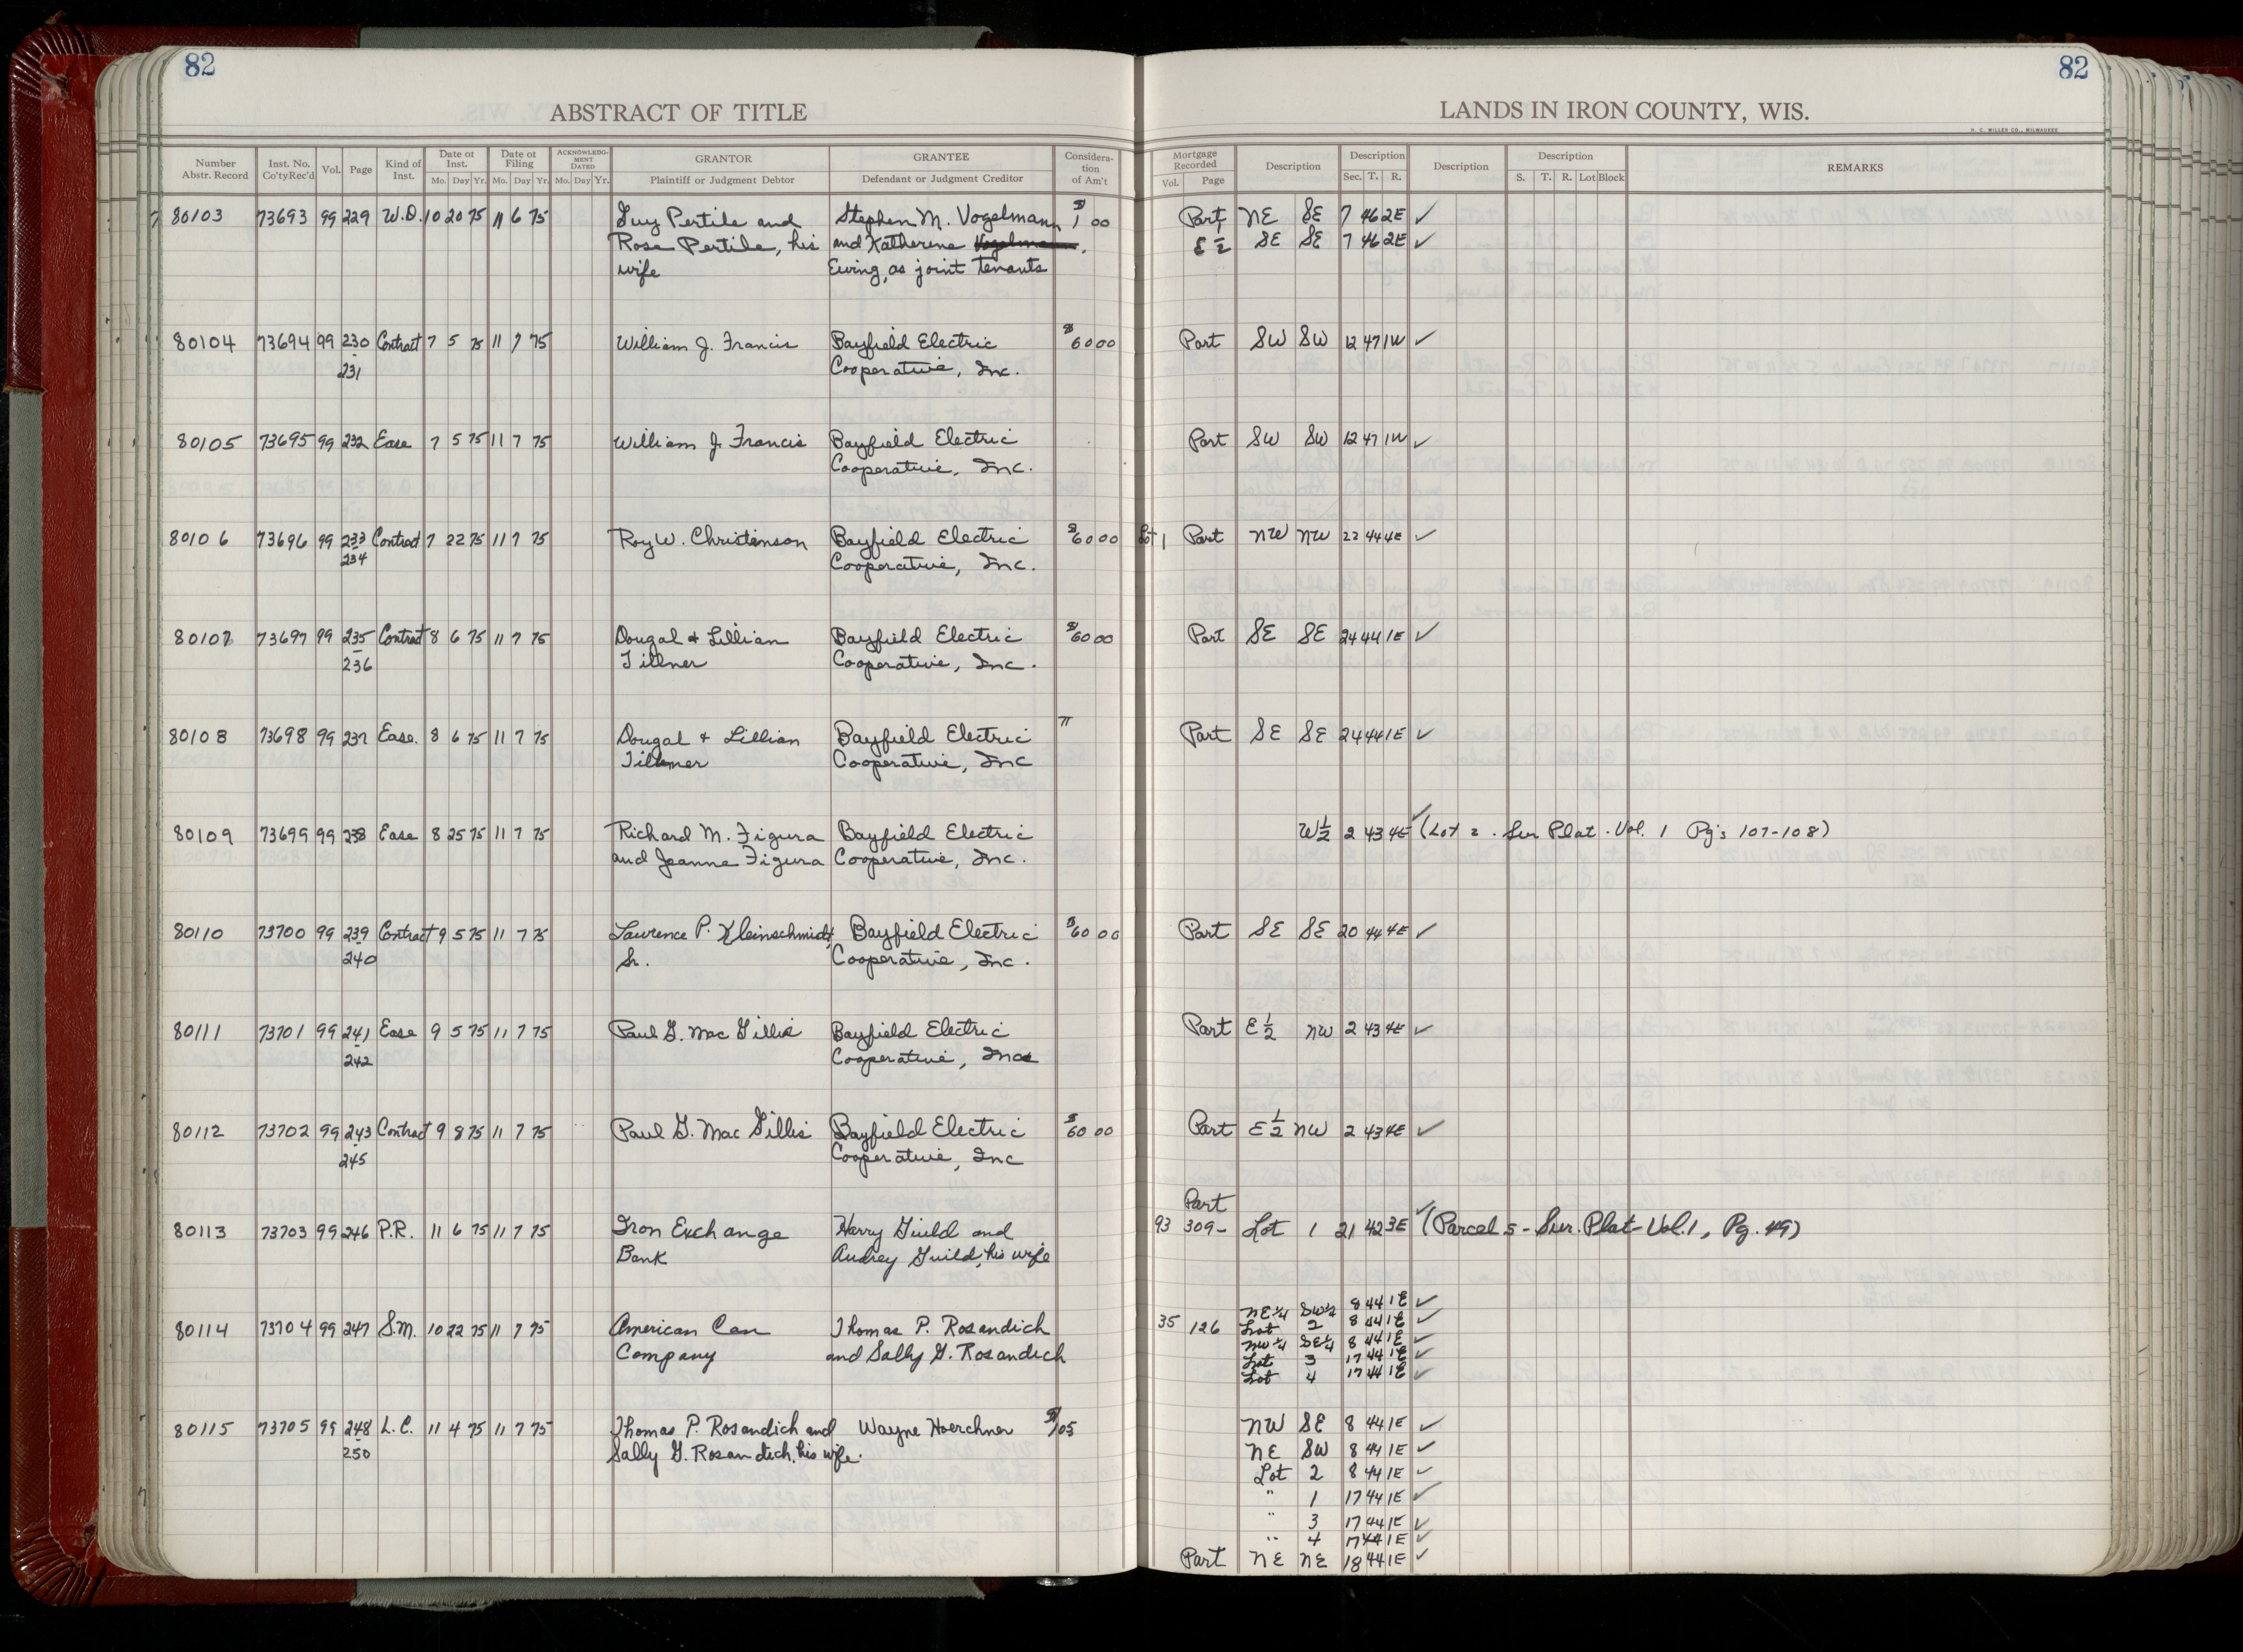 82
82
ABSTRACT OF TITLE
LANDS IN IRON COUNTY, WIS.
H. C. MILLER CO., MILWAUKEE
Number Abstr. Record Inst. No. Co'ty Rec'd Vol. Page Kind of Inst. Date of Inst. Mo. Day Yr. Date of Filing Mo. Day Yr. ACKNOWLEDGMENT DATED Mo. Day Yr. GRANTOR Plaintiff or Judgment Debtor GRANTEE Defendant or Judgment Creditor Consideration of Am't
Mortgage Recorded Vol. Page Description Description Sec. T. R. Description Description S. T. R. Lot Block REMARKS
80103 73693 99 229 W.D. 10 20 75 11 6 75 Guy Pertile and Stephen M. Vogelmann $1 00 Part NE SE 7 46 2E ✓
Rose Pertile, his and Katherine E 1/2 SE SE 7 46 2E ✓
wife Ewing, as joint tenants
80104 73694 99 230 Contract 7 5 75 11 7 75 William J. Francis Bayfield Electric $60 00 Part SW SW 12 47 1W ✓
- 231 Cooperative, Inc.
80105 73695 99 232 Ease 7 5 75 11 7 75 William J. Francis Bayfield Electric Part SW SW 12 47 1W ✓
Cooperative, Inc.
80106 73696 99 233 Contract 7 22 75 11 7 75 Roy W. Christenson Bayfield Electric $60 00 Lot 1 Part NW NW 22 44 4E ✓
- 234 Cooperative, Inc.
80107 73697 99 235 Contract 8 6 75 11 7 75 Dougal & Lillian Bayfield Electric $60 00 Part SE SE 24 44 1E ✓
- 236 Tillner Cooperative, Inc.
80108 73698 99 237 Ease. 8 6 75 11 7 75 Dougal + Lillian Bayfield Electric Part SE SE 24 44 1E ✓
Cooperative, Inc
80109 73699 99 238 Ease 8 25 75 11 7 75 Richard M. Figura Bayfield Electric W 1/2 2 43 4E ✓ (Lot 2 . Sur Plat . Vol. 1 Pg's 107-108)
and Jeanne Figura Cooperative, Inc.
80110 73700 99 239 Contract 9 5 75 11 7 75 Lawrence P. Kleinschmidt, Bayfield Electric $60 00 Part SE SE 20 44 4E ✓
- 240 Sr. Cooperative, Inc.
80111 73701 99 241 Ease 9 5 75 11 7 75 Paul G. Mac Gillis Bayfield Electric Part E 1/2 NW 2 43 4E ✓
- 242 Cooperative, Inc
80112 73702 99 243 Contract 9 8 75 11 7 75 Paul G. Mac Gillis Bayfield Electric $60 00 Part E 1/2 NW 2 43 4E ✓
- 245 Cooperative, Inc
Part
80113 73703 99 246 P.R. 11 6 75 11 7 75 Iron Exchange Harry Guild and 93 309- Lot 1 21 42 3E ✓ (Parcel 5 - Sur. Plat - Vol. 1, Pg. 49)
Bank Audrey Guild, his wife
NE 1/4 SW 1/4 8 44 1E ✓
80114 73704 99 247 S.M. 10 22 75 11 7 75 American Can Thomas P. Rosandich 35 126 Lot 2 8 44 1E ✓
NW 1/4 SE 1/4 8 44 1E ✓
Company and Sally G. Rosandich Lot 3 17 44 1E ✓
Lot 4 17 44 1E ✓
80115 73705 99 248 L.C. 11 4 75 11 7 75 Thomas P. Rosandich and Wayne Hoerchner NW SE 8 44 1E ✓
- 250 Sally G. Rosandich, his wife. NE SW 8 44 1E ✓
Lot 2 8 44 1E ✓
" 1 17 44 1E ✓
" 3 17 44 1E ✓
" 4 17 44 1E ✓
Part NE NE 18 44 1E ✓